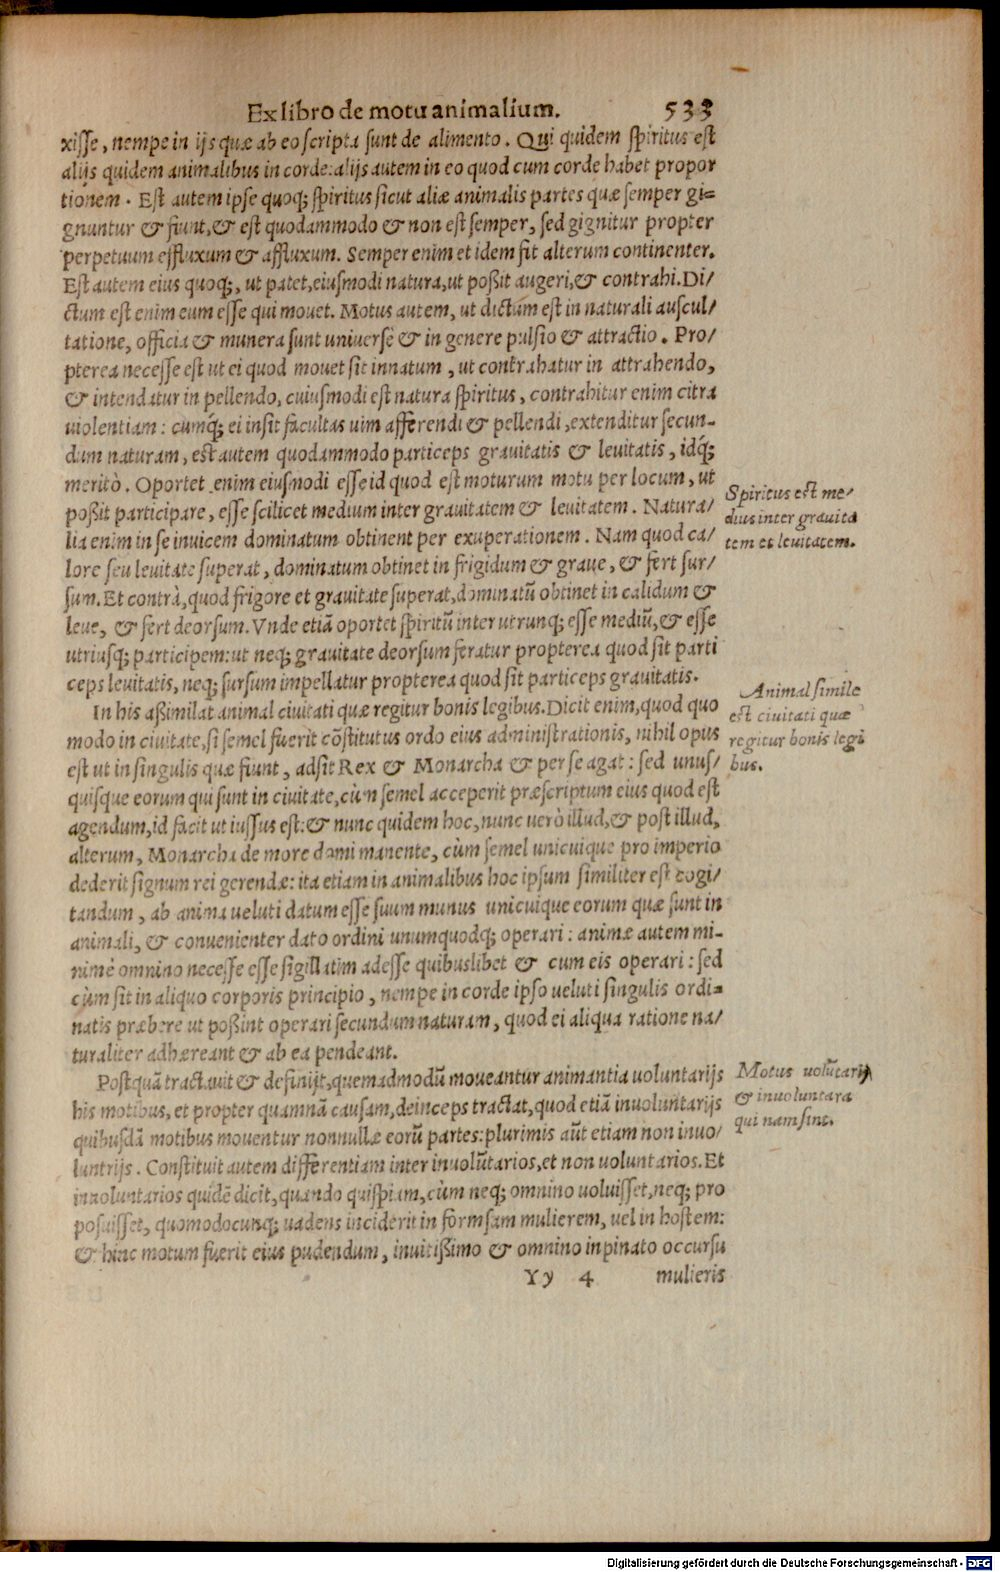 Ex libro de motu animalium. 533
xisse, nempe in ijs quæ ab eo scripta sunt de alimento. Qui quidem spiritus est
alijs quidem animalibus in corde: alijs autem in eo quod cum corde habet propor
tionem. Est autem ipse quoq; spiritus sicut aliæ animalis partes quæ semper gi=
gnuntur & fiunt, & est quodammodo & non est semper, sed gignitur propter
perpetuum effluxum & affluxum. Semper enim et idem fit alterum continenter.
Est autem eius quoq;, ut patet, eiusmodi natura, ut poßit augeri, & contrahi. Di/
ctum est enim eum esse qui mouet. Motus autem, ut dictum est in naturali auscul/
tatione, officia & munera sunt uniuersè & in genere pulsio & attractio. Pro/
pterea necesse est ut ei quod mouet sit innatum, ut contrahatur in attrahendo,
& intendatur in pellendo, cuiusmodi est natura spiritus, contrahitur enim citra
uiolentiam: cumq́; ei insit facultas uim afferendi & pellendi, extenditur secun-
dum naturam, est autem quodammodo particeps grauitatis & leuitatis, idq́;
meritò. Oportet enim eiusmodi esse id quod est moturum motu per locum, ut
poßit participare, esse scilicet medium inter grauitatem & leuitatem. Natura/
lia enim in se inuicem dominatum obtinent per exuperationem. Nam quod ca/
lore seu leuitate superat, dominatum obtinet in frigidum & graue, & fert sur/
sum. Et contrà, quod frigore et grauitate superat, dominatũ obtinet in calidum &
leue, & fert deorsum. Vnde etiã oportet spiritũ inter utrunq; esse mediũ, & esse
utriusq; participem: ut neq; grauitate deorsum feratur propterea quod sit parti
ceps leuitatis, neq; sursum impellatur propterea quod sit particeps grauitatis.
Spiritus est me/
dius inter grauita
tem et leuitatem.
In his aßimilat animal ciuitati quæ regitur bonis legibus. Dicit enim, quod quo
modo in ciuitate, si semel fuerit cõstitutus ordo eius administrationis, nihil opus
est ut in singulis quæ fiunt, adsit Rex & Monarcha & per se agat: sed unus/
quisque eorum qui sunt in ciuitate, cùm semel acceperit præscriptum eius quod est
agendum, id facit ut iussus est: & nunc quidem hoc, nunc uerò illud, & post illud,
alterum, Monarcha de more domi manente, cùm semel unicuique pro imperio
dederit signum rei gerendæ: ita etiam in animalibus hoc ipsum similiter est cogi/
tandum, ab anima ueluti datum esse suum munus unicuique eorum quæ sunt in
animali, & conuenienter dato ordini unumquodq; operari: animæ autem mi-
nimè omnino necesse esse sigillatim adesse quibuslibet & cum eis operari: sed
cùm sit in aliquo corporis principio, nempe in corde ipso ueluti singulis ordi=
natis præbere ut poßint operari secundum naturam, quod ei aliqua ratione na/
turaliter adhæreant & ab ea pendeant.
Animal simile
est ciuitati quæ
regitur bonis legi
bus.
Postquã tractauit & definijt, quemadmodũ moueantur animantia uoluntarijs
his motibus, et propter quamnã causam, deinceps tractat, quod etiã inuoluntarijs
quibusdã motibus mouentur nonnullæ eorũ partes: plurimis aũt etiam non inuo/
luntrijs. Constituit autem differentiam inter inuolũtarios, et non uoluntarios. Et
inuoluntarios quidẽ dicit, quando quispiam, cùm neq; omnino uoluisset, neq; pro
posuisset, quomodocunq; uadens inciderit in formsam mulierem, uel in hostem:
& hinc motum fuerit eius pudendum, inuitißimo & omnino inpinato occursu
Motus uolũtarij
& inuoluntara
qui nam sint.
Yy 4 mulieris
Digitalisierung gefördert durch die Deutsche Forschungsgemeinschaft - DFG